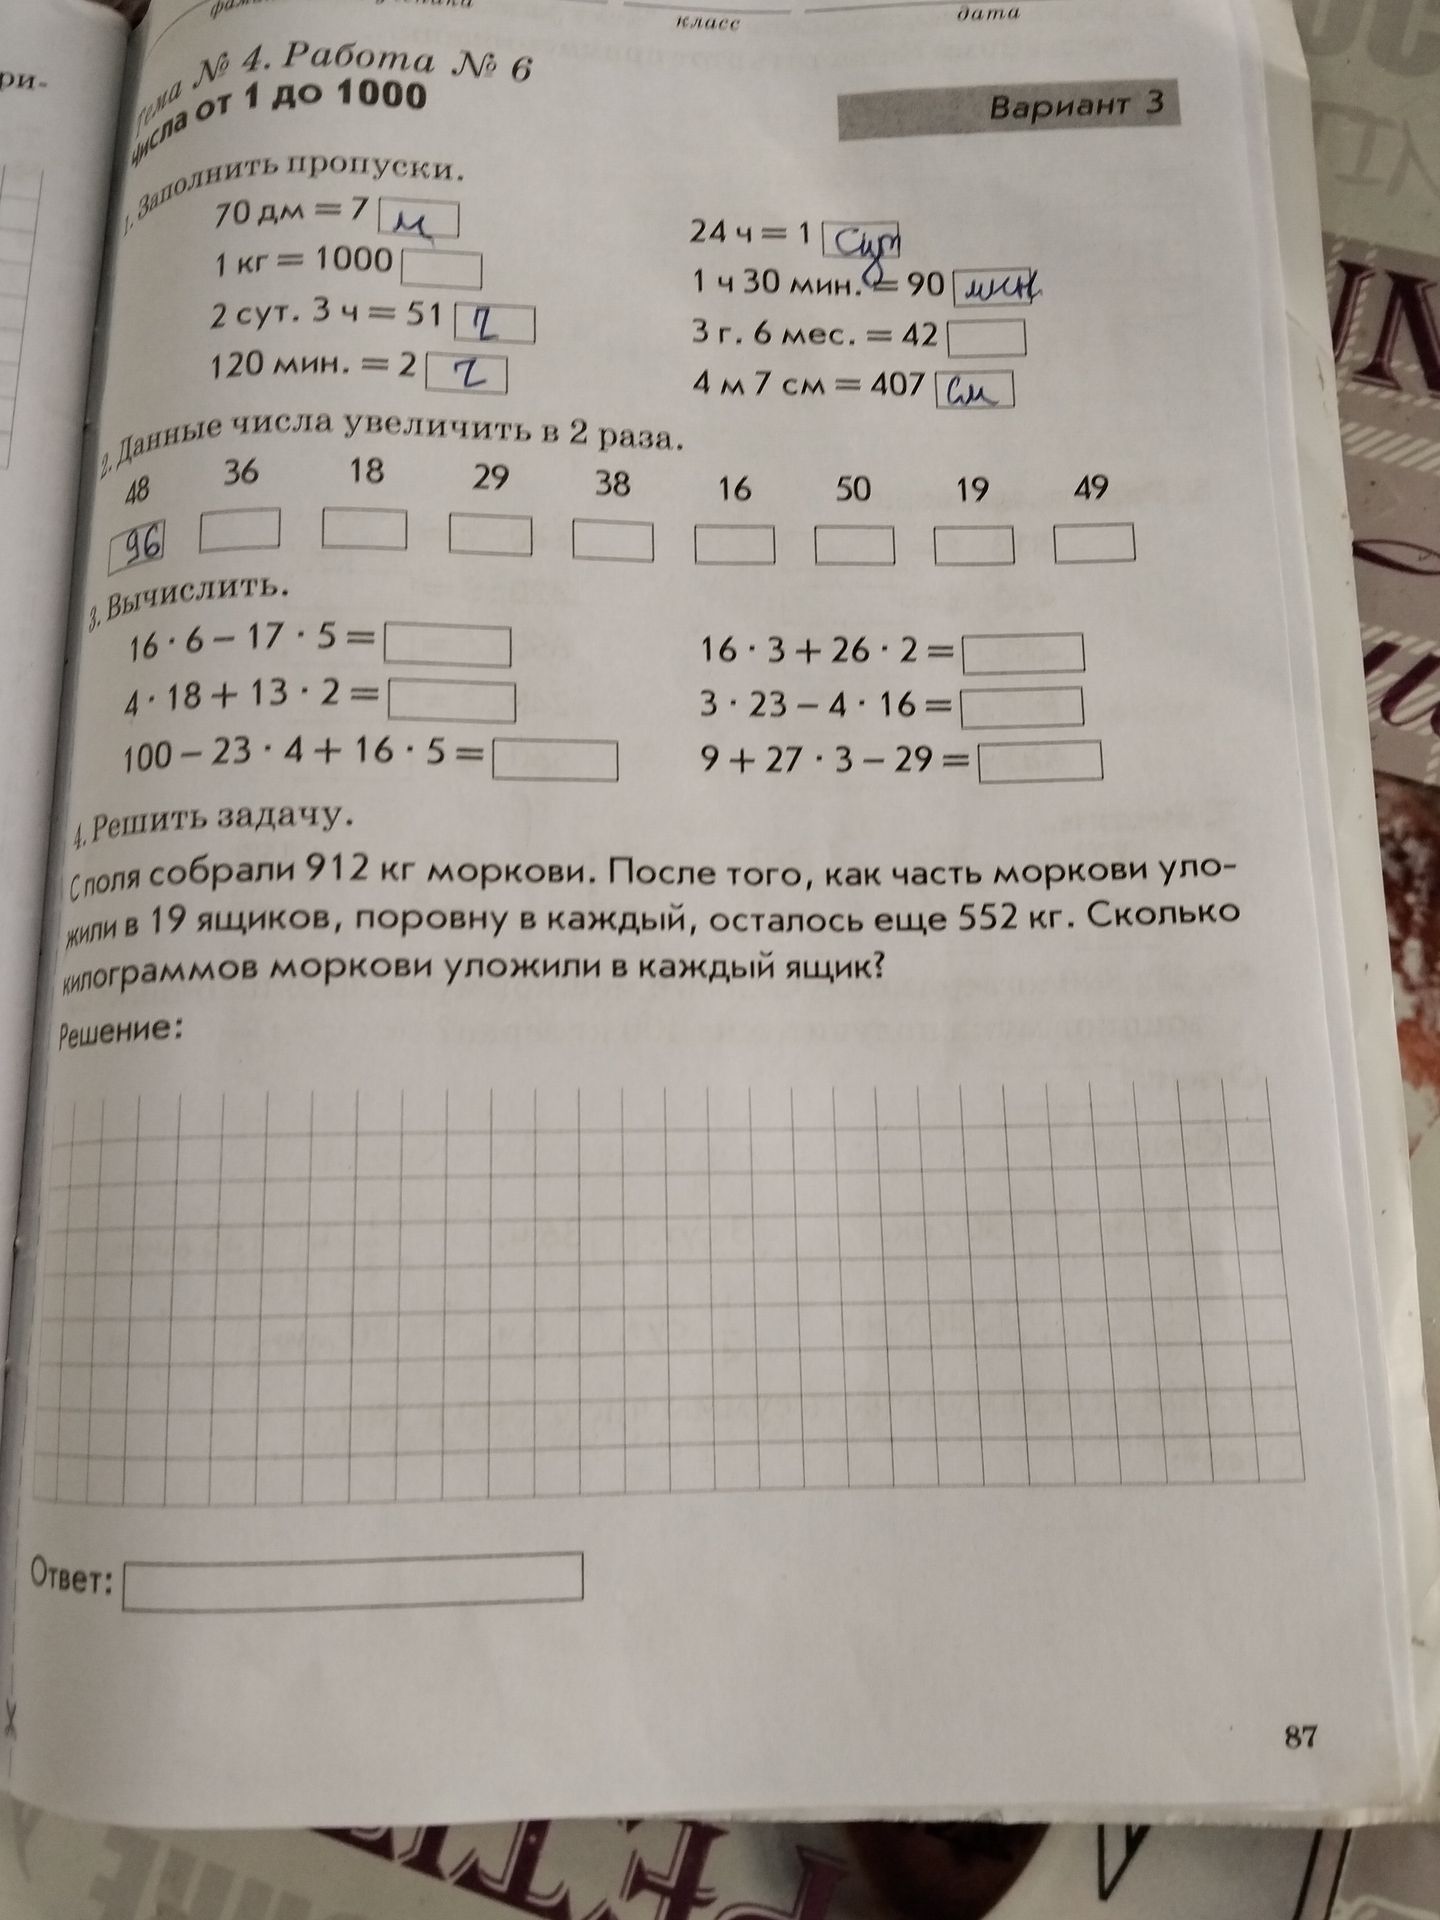 ри-
класс
дата
Тема № 4. Работа № 6
Числа от 1 до 1000
Вариант 3
1. Заполнить пропуски.
70 дм = 7 м
24 ч = 1 сут
1 кг = 1000
1 ч 30 мин. = 90 мин
2 сут. 3 ч = 51 ч
3 г. 6 мес. = 42
120 мин. = 2 ч
4 м 7 см = 407 см
2. Данные числа увеличить в 2 раза.
48 36 18 29 38 16 50 19 49
96
3. Вычислить.
16 · 6 – 17 · 5 =
16 · 3 + 26 · 2 =
4 · 18 + 13 · 2 =
3 · 23 – 4 · 16 =
100 – 23 · 4 + 16 · 5 =
9 + 27 · 3 – 29 =
4. Решить задачу.
С поля собрали 912 кг моркови. После того, как часть моркови уло-
жили в 19 ящиков, поровну в каждый, осталось еще 552 кг. Сколько
килограммов моркови уложили в каждый ящик?
Решение:
Ответ:
87